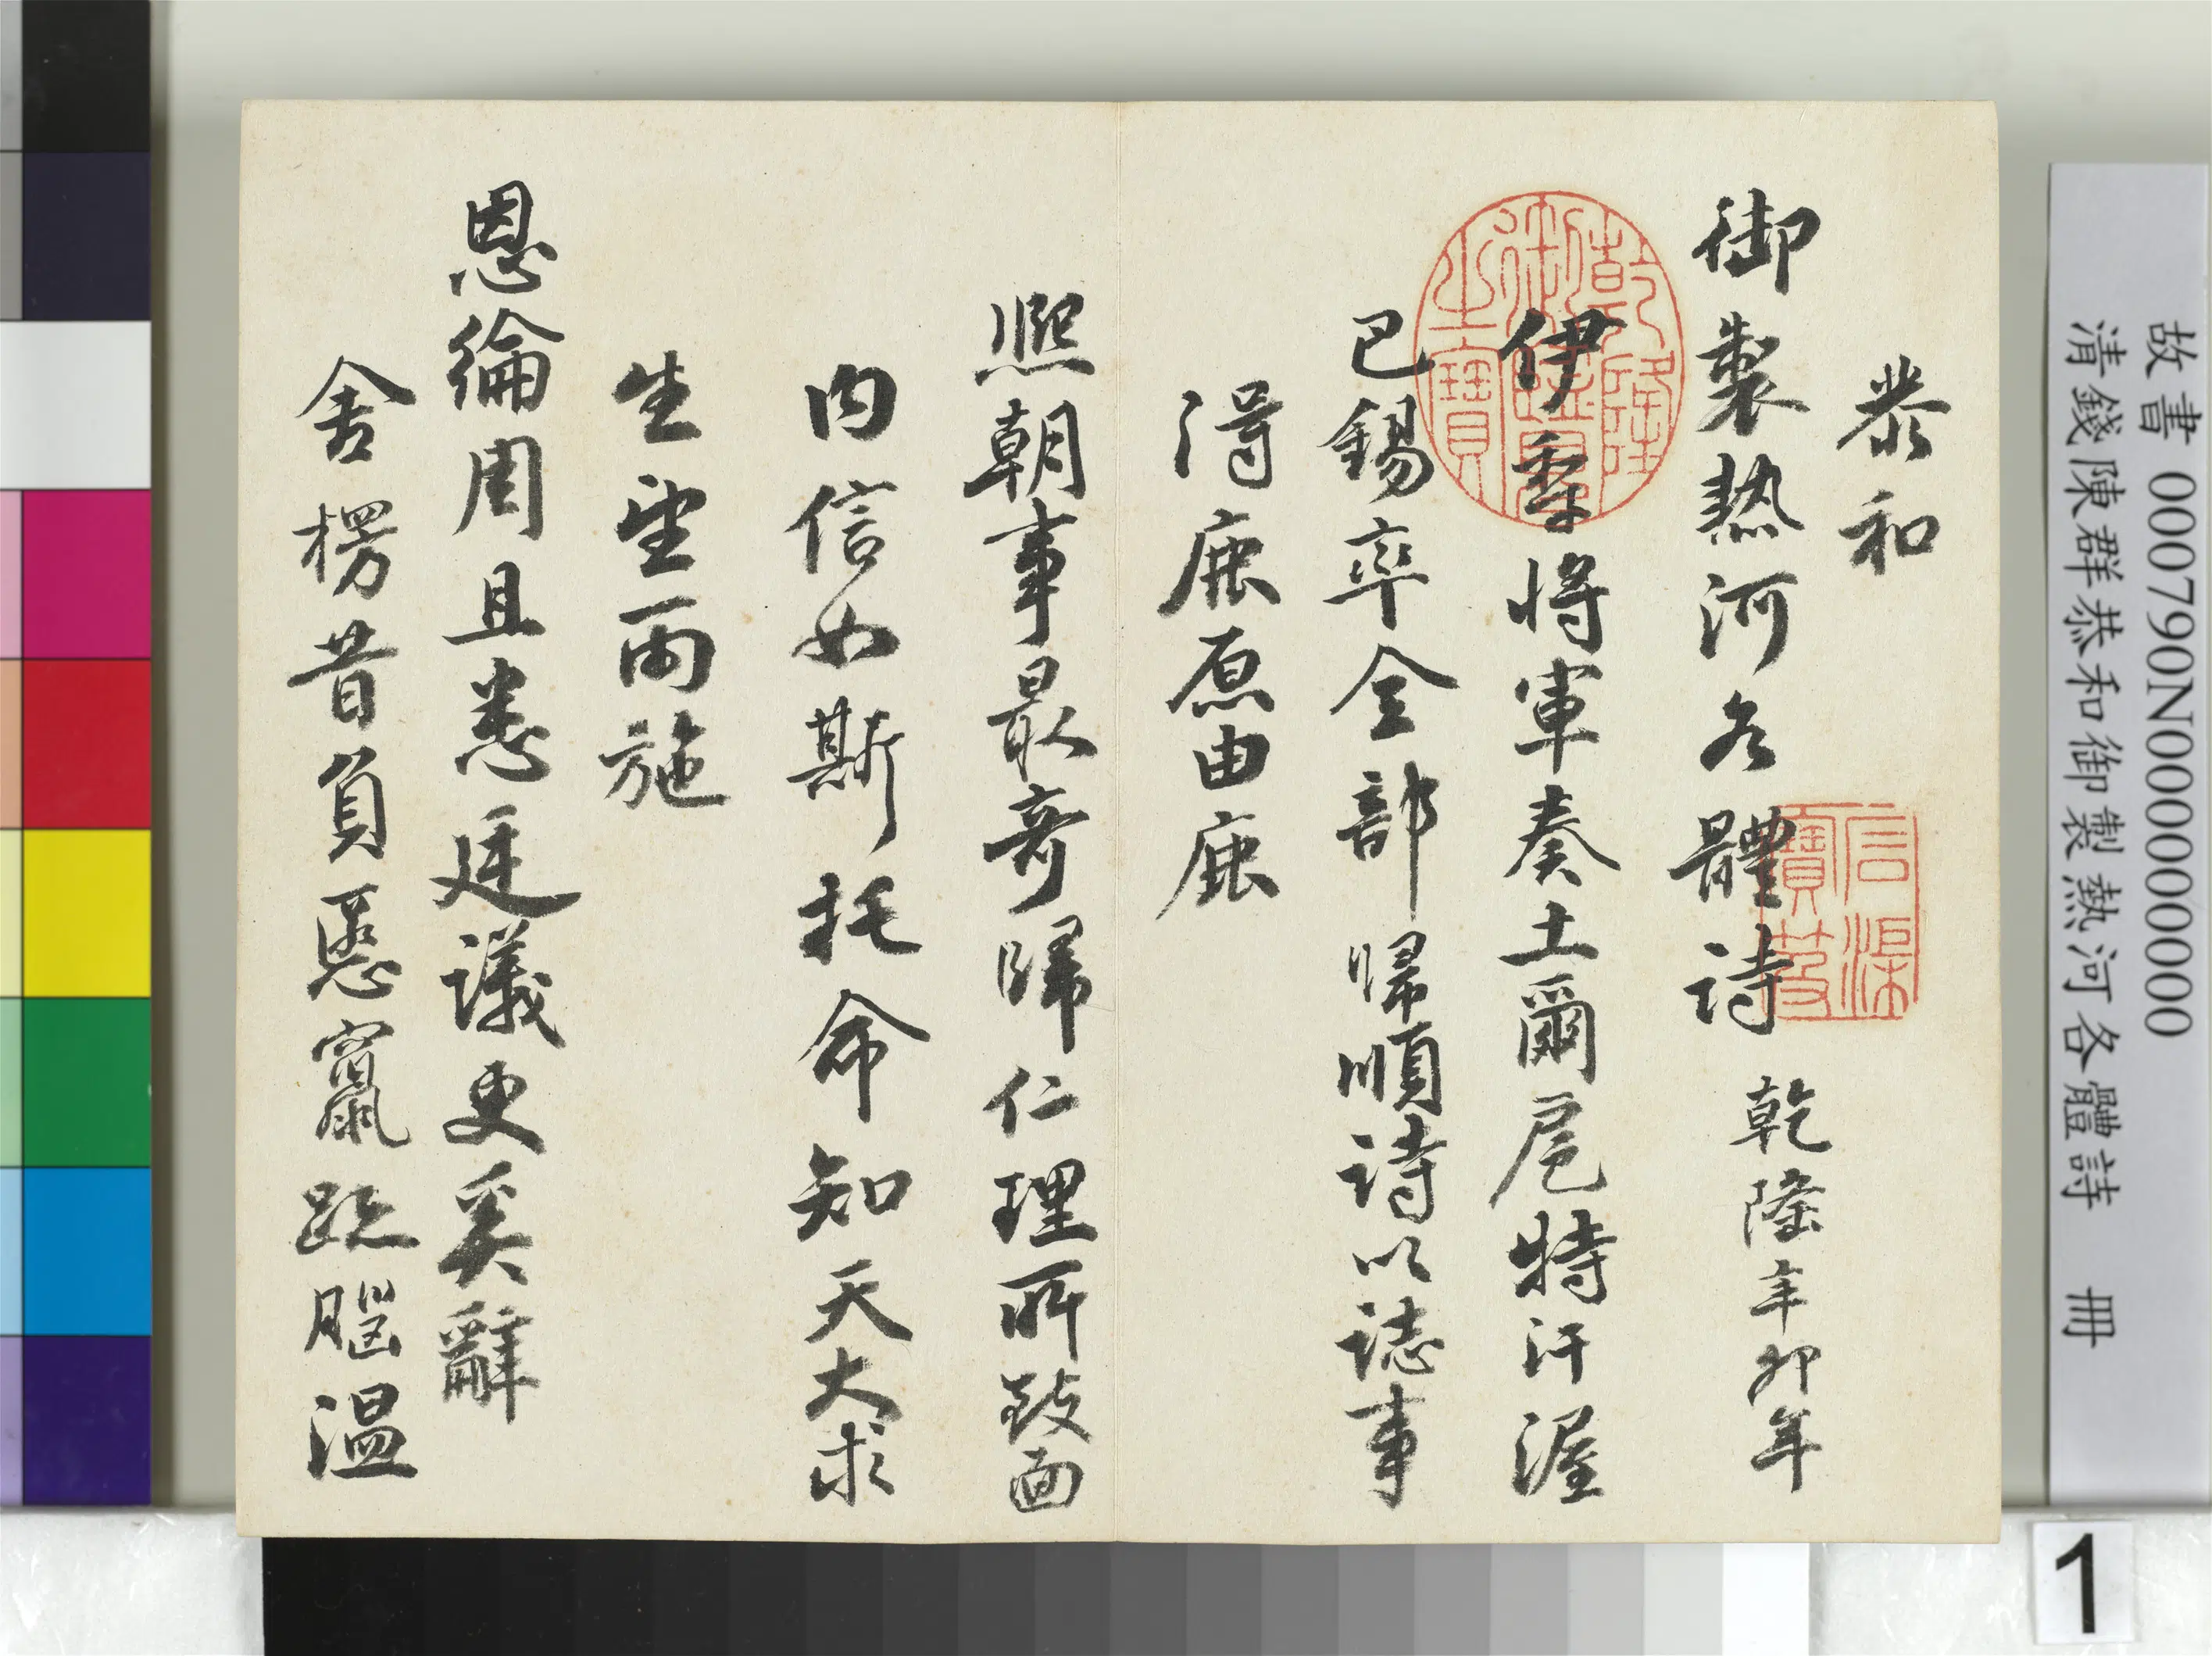 故書 000790N000000000
清錢陳群恭和御製熱河各體詩 冊
恭和
御製熱河各體詩 乾隆辛卯年
伊犁將軍奏土爾扈特汗渥
巴錫率全部歸順詩以誌事
得鹿原由鹿
熙朝事最奇歸仁理所致面
內信如斯托命知天大求
生望雨施
恩綸周且悉廷議更奚辭
舍楞昔負慝竄跡腦溫
乾隆御覽之寶
石渠寶笈
1